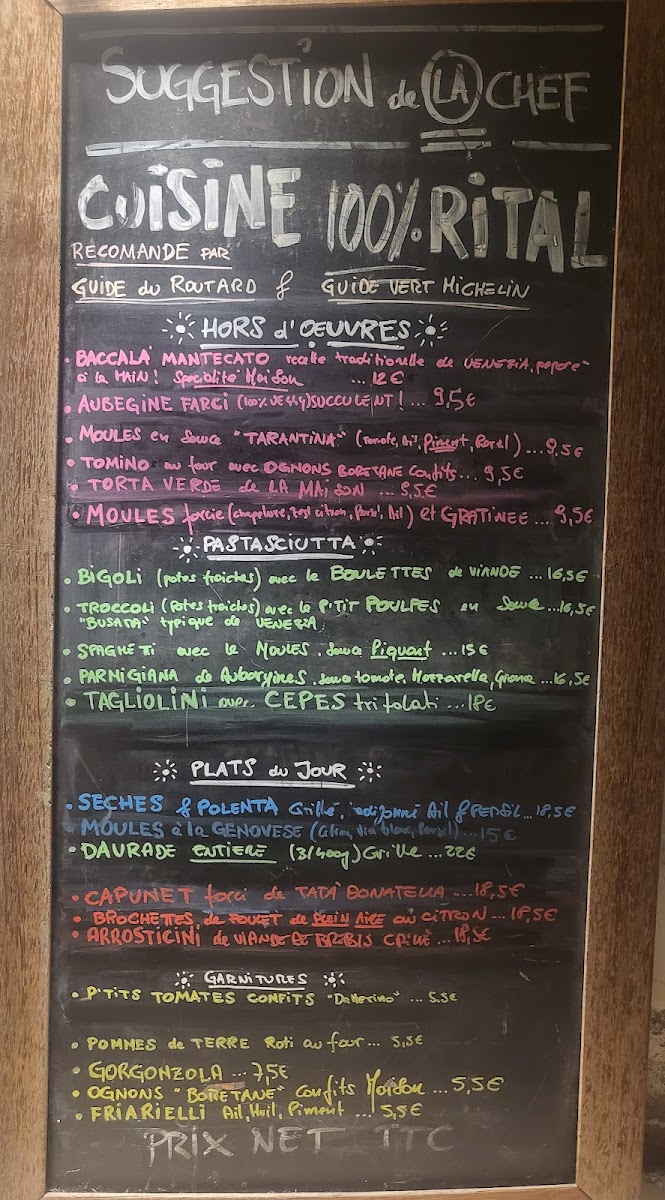 SUGGESTION de LA CHEF
CUISINE 100% RITAL
RECOMANDE PAR
GUIDE du ROUTARD & GUIDE VERT MICHELIN
HORS d'ŒUVRES
• BACCALA' MANTECATO recette traditionelle de VENEZIA,
à la MAIN! Specialité Maison ... 12€
• AUBEGINE FARCI (100% VEGGY) SUCCULENT! ... 9,5€
• MOULES en Sauce "TARANTINA" (Tomate, Ail, Piment, Persil) ... 9,5€
• TOMINO au four avec OGNONS BORETANE Confits ... 9,5€
• TORTA VERDE de LA MAISON ... 5,5€
• MOULES farcie (chapelure, zest citron, Persil, Ail) et GRATINEE ... 9,5€
PASTASCIUTTA
• BIGOLI (pates fraiches) avec le BOULETTES de VIANDE ... 16,5€
• TROCCOLI (Pates fraiches) avec le P'TIT POULPES en Sauce ... 16,5€
"BUSARA" typique de VENEZIA
• SPAGHETI avec le MOULES, sauce Piquant ... 15€
• PARMIGIANA de Aubergines, sauce tomate, Mozzarella, Grana ... 16,5€
• TAGLIOLINI avec CEPES trifolati ... 18€
PLATS du JOUR
• SECHES & POLENTA Grillé, Ail & PERSIL ... 18,5€
• MOULES à la GENOVESE (Citron, Vin blanc, Persil) ... 15€
• DAURADE ENTIERE (3/400g) Grillé ... 22€
• CAPUNET farci de TATA' DONATELLA ... 18,5€
• BROCHETTES de POULET de PLEIN AIRE au CITRON ... 18,5€
• ARROSTICINI de VIANDE DE BREBIS GRILLÉ ... 18,5€
GARNITURES
• P'TITS TOMATES CONFITS "Datterino" ... 5.5€
• POMMES de TERRE Roti au four ... 5,5€
• GORGONZOLA ... 7,5€
• OGNONS "BORETANE" Confits Maison ... 5,5€
• FRIARIELLI Ail, Huil, Piment ... 5,5€
PRIX NET TTC